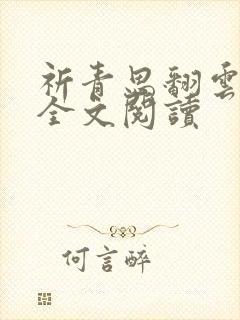 祈青思翻雲
全文閱讀
何言醉